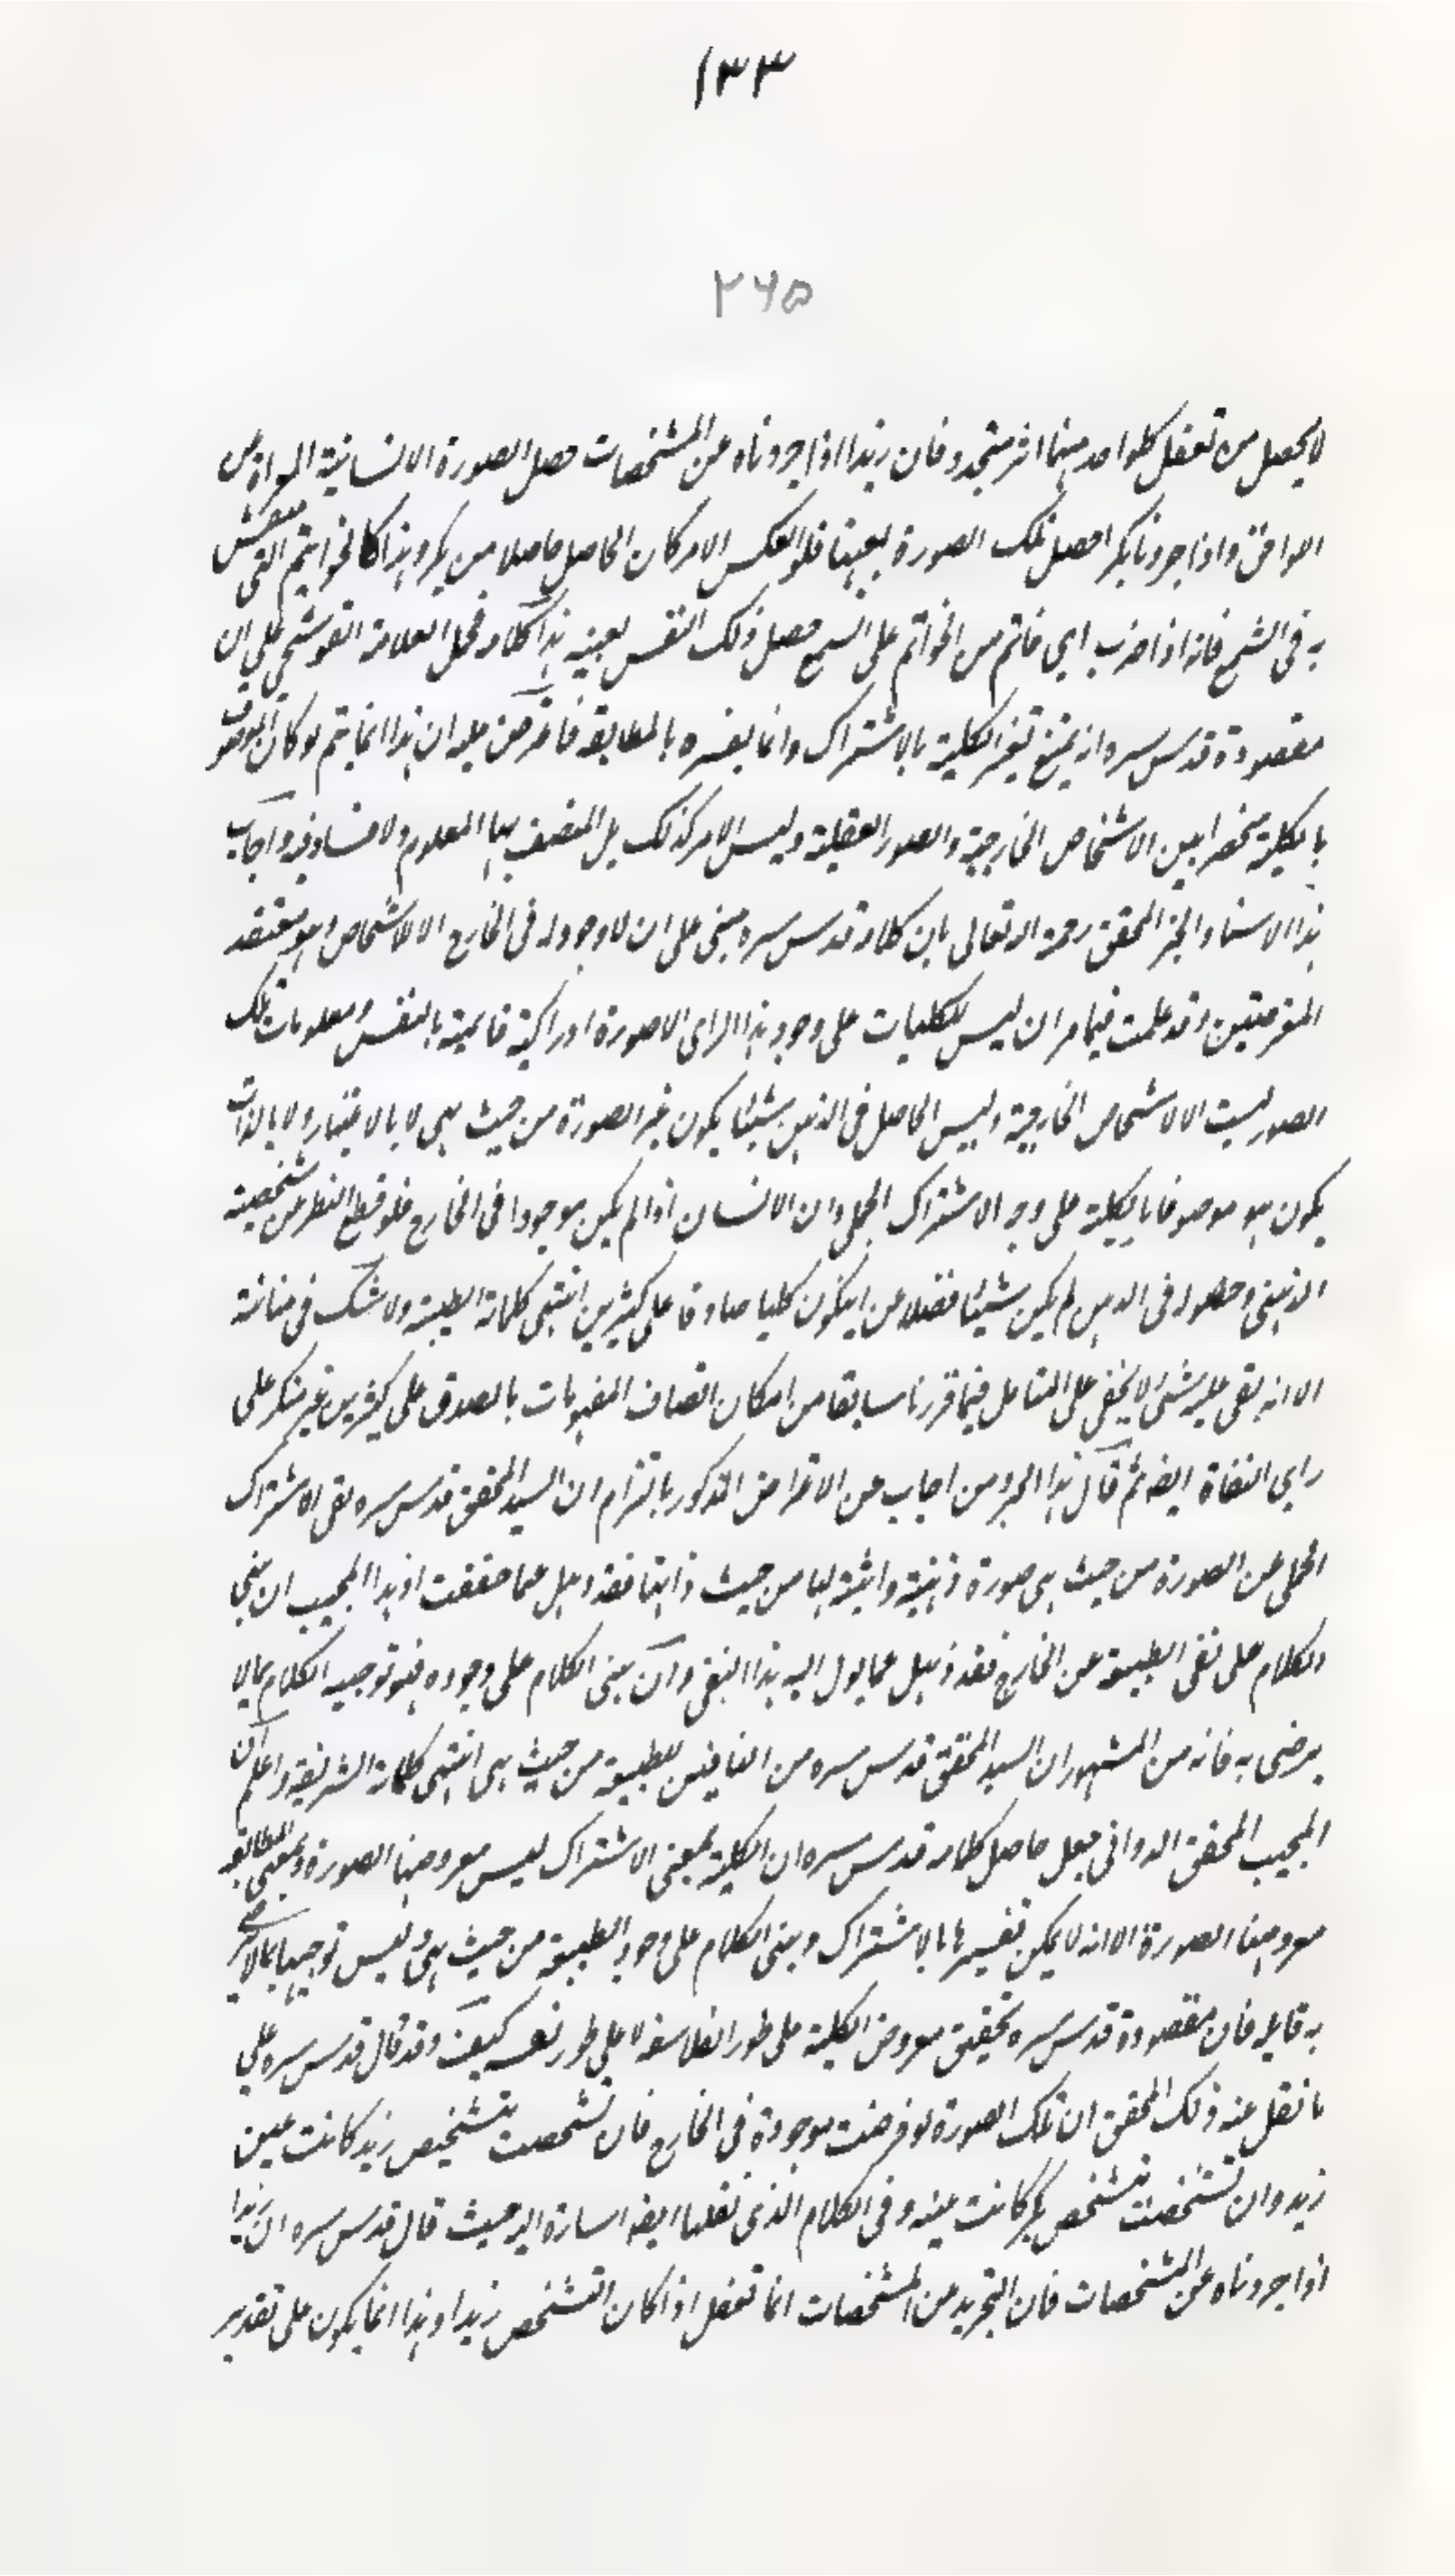 ١٣٣
٢٦٥
لا يحصل من تعقل كلواحد منها اثر متجدد فان زيدا اذا جردناه عن المشخصات حصل الصورة الانسانية المعراة عن
اللواحق واذا جردنا بكرا حصل تلك الصورة بعينها فلو انعكس الامر كان الحاصل حاصلا من بكر وهذا كالخواتيم التى ينتقش
به فى الشمع فانه اذا ضرب اى خاتم من الخواتم على الشمع حصل ذلك النقش بعينه هذا كلامه فحمل العلامة القوشجى على ان
مقصوده قدس سره انه يمتنع تفسير الكلية بالاشتراك وانما يفسره بالمطابقة فاعترض عليه ان هذا انما يتم لو كان الموصوف
بالكلية منحصرا بين الاشخاص الخارجية والصور العقلية وليس الامر كذلك بل المتصف بها المعلوم ولا فساد فيه واجاب
هذا الاستاد الحبر المحقق رحمه الله تعالى بان كلامه قدس سره مبنى على ان لا وجود له فى الخارج الا الاشخاص وهو معتقد
وقد علمت فيما مر ان ليس للكليات على وجود هذا الراى الا صورة ادراكية قايمة بالنفس ومعلومات تلك
الصور ليست الا الاشخاص الخارجية وليس الحاصل فى الذهن شيئا يكون غير الصورة من حيث هى لا بالاعتبار ولا بالذات
يكون هو موصوفا بالكلية على وجه الاشتراك الحملى وان الانسان اذا لم يكن موجودا فى الخارج فلو قطع النظر عن شخصيته
الذهنى وحصوله فى الذهن لم يكن شيئا فضلا عن ان يكون كليا صادقا على كثيرين انتهى كلماته الطيبة ولا شك فى متانته
الا انه بقى عليه شىء لا يخفى على المتامل فيما قررنا سابقا من امكان اتصاف المفهومات بالصدق على كثيرين غير منكر على
راى النفاة ايضا ثم قال هذا الحبر ومن اجاب عن الاعتراض المذكور بالتزام ان السيد المحقق قدس سره نفى الاشتراك
الحملى عن الصورة من حيث هى صورة ذهنية واثبته لها من حيث ذاتها فقد ذهل عما حققت اذ هذا المجيب ان بنى
الكلام على نفى الطبيعة عن الخارج فقد ذهل عما يول اليه هذا النفى وان بنى الكلام على وجوده فهو توجيه الكلام بما لا
يرضى به فانه من المشهور ان السيد المحقق قدس سره من النافين للطبيعة من حيث هى انتهى كلماته الشريفة واعلم ان
المجيب المحقق الدوانى جعل حاصل كلامه قدس سره ان الكلية بمعنى الاشتراك ليس معروضها الصورة وبمعنى المطابقة
معروضها الصورة الا انه لا يمكن تفسيرها بالاشتراك وبنى الكلام على وجود الطبيعة من حيث هى وليس توجيها بما لا يرضى
به قايله فان مقصوده قدس سره تحقيق معروض الكلية على طور الفلاسفة لا على طور نفسه كيف وقد قال قدس سره على
ما نقل عنه ذلك المحقق ان تلك الصورة لو فرضت موجودة فى الخارج فان تشخصت بتشخص زيد كانت عين
زيد وان تشخصت بتشخص بكر كانت عينه وفى الكلام الذى نقلنا ايضا اشارة اليه حيث قال قدس سره ان زيدا
اذا جردناه عن المشخصات فان التجريد عن المشخصات انما تعقل اذا كان التشخص زيدا وهذا انما يكون على تقدير